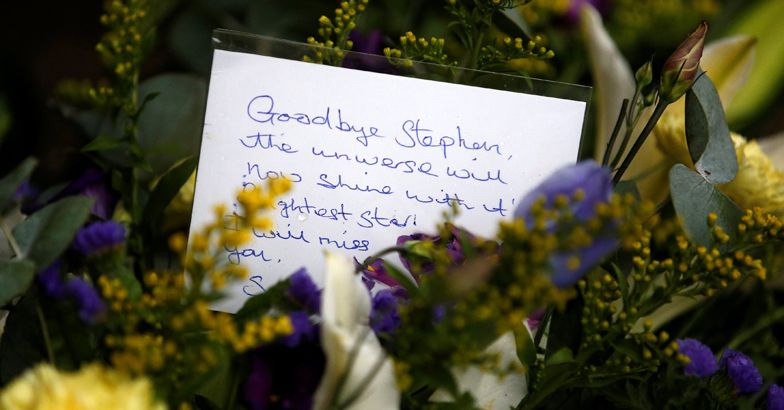 Goodbye Stephen,
the universe will
now shine with it'
ightest star!
I will miss
you,
S